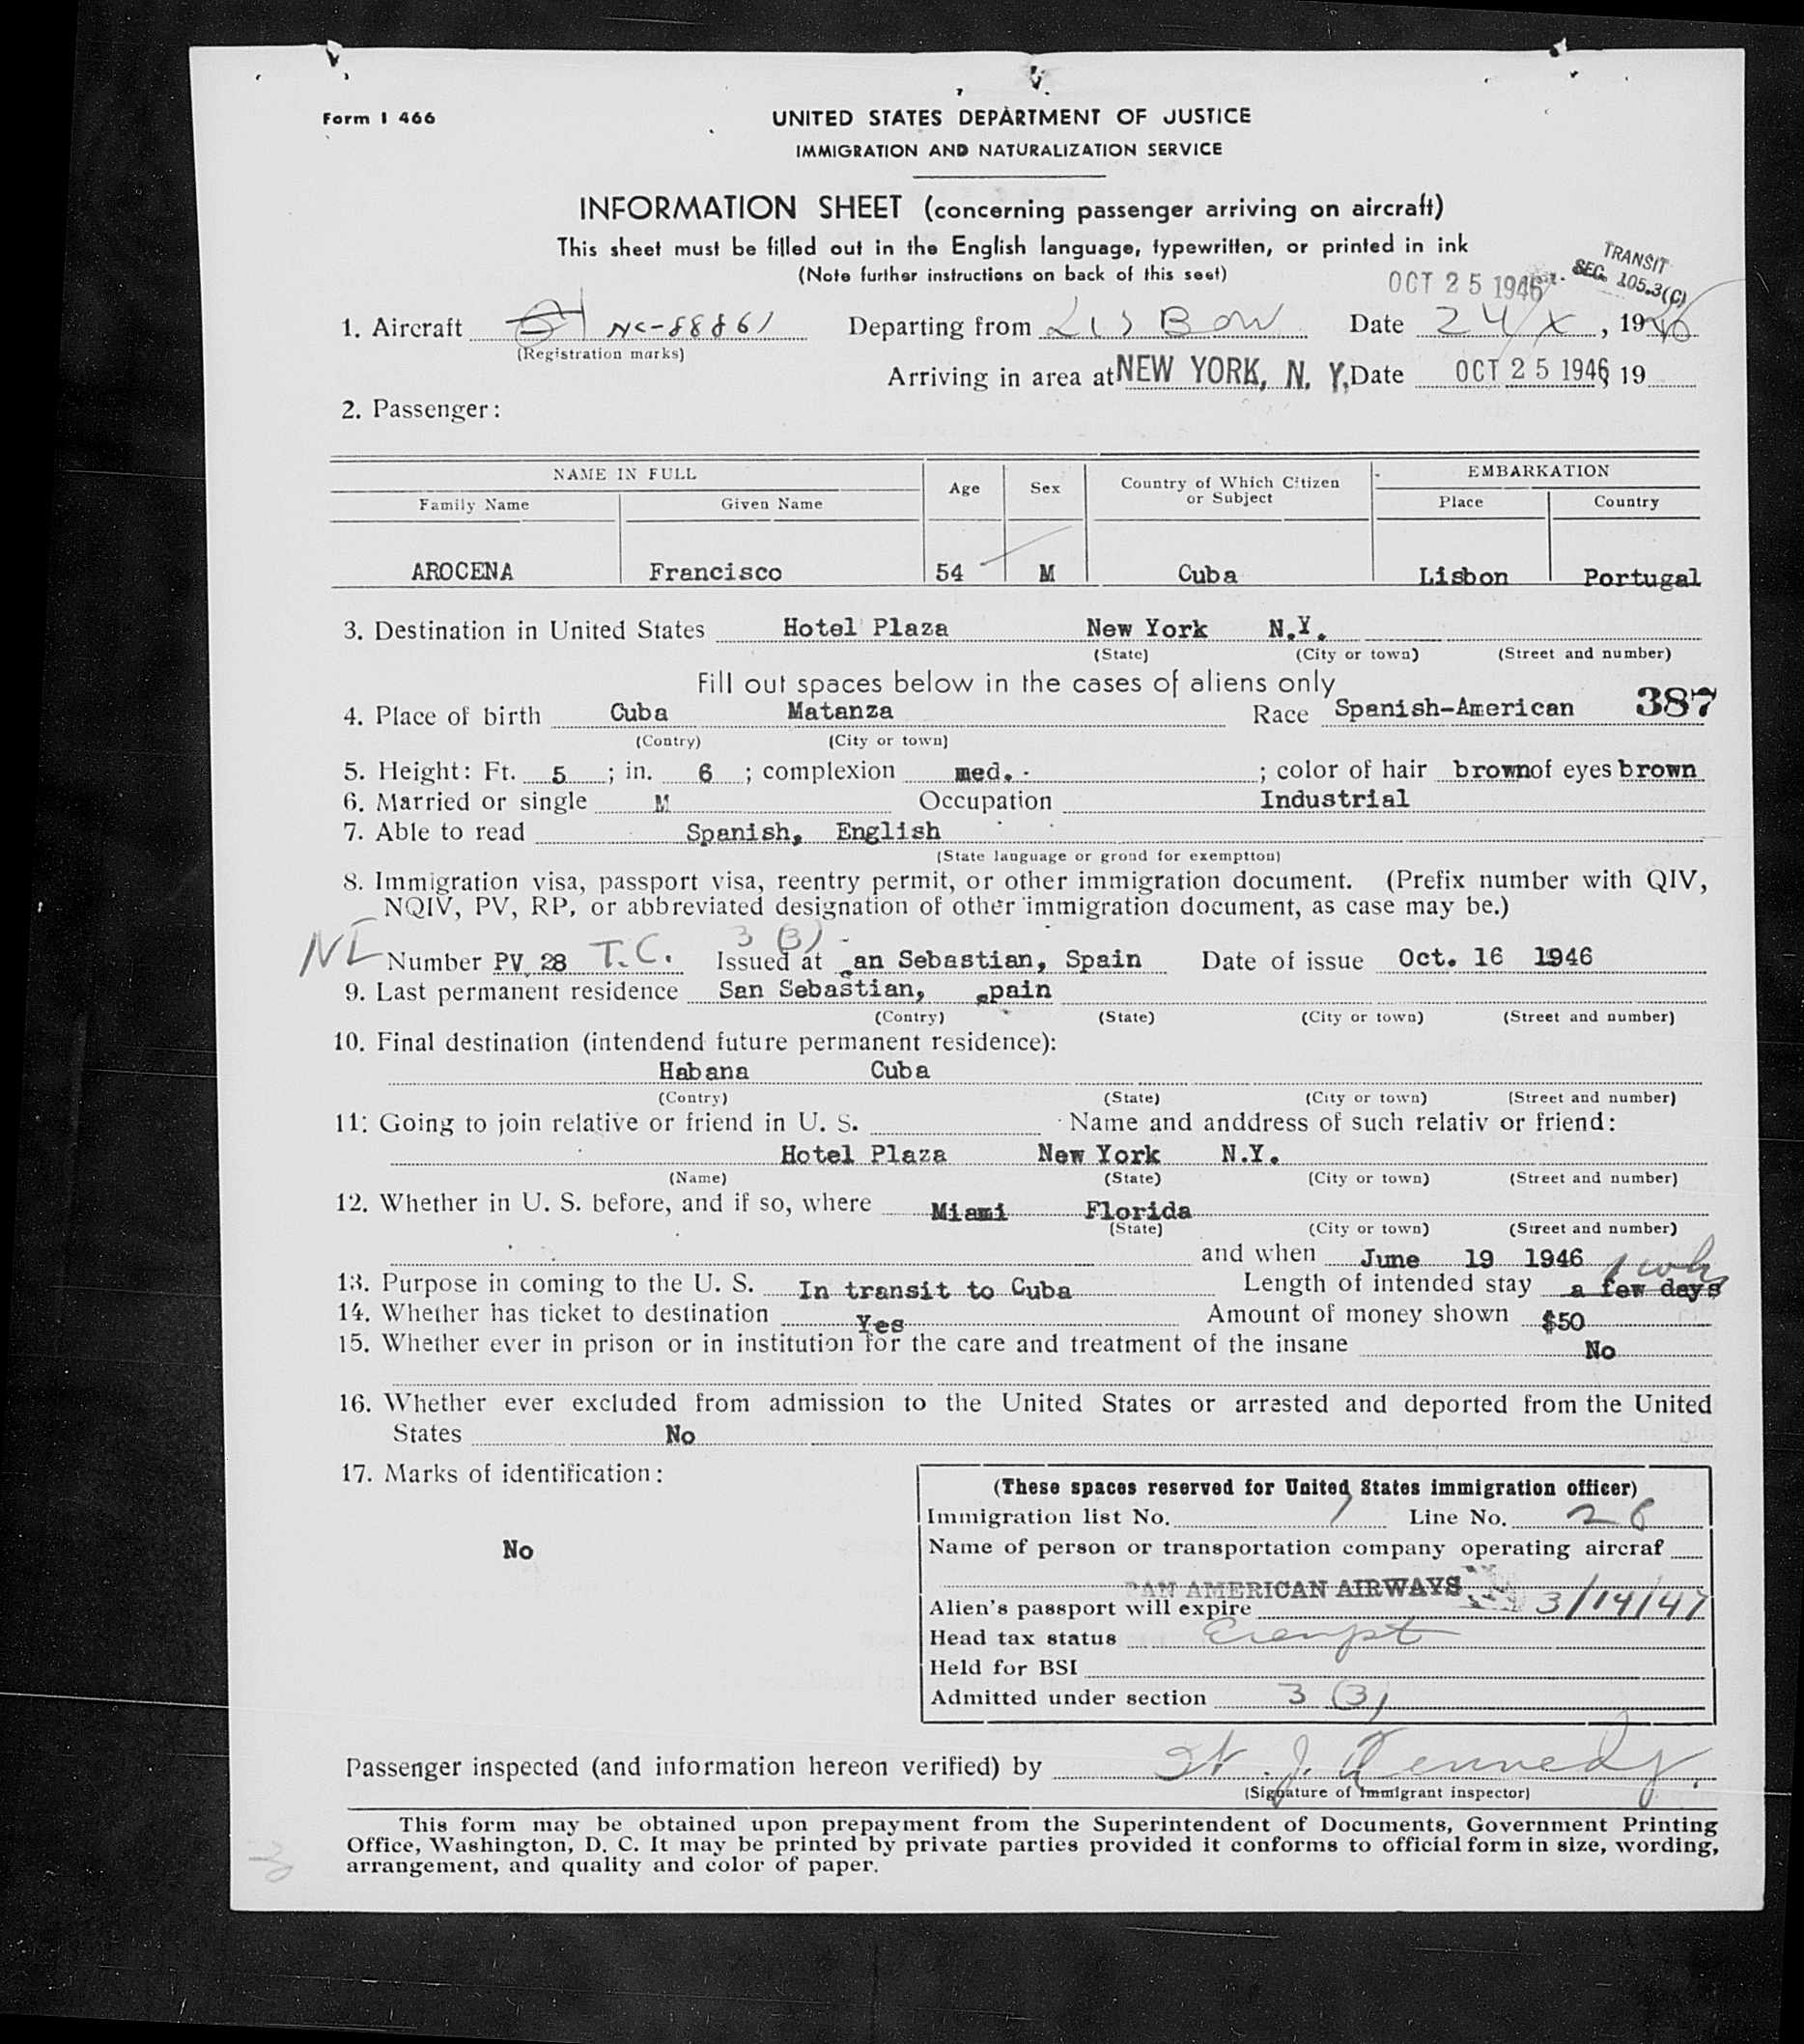 Form I 466
UNITED STATES DEPARTMENT OF JUSTICE
IMMIGRATION AND NATURALIZATION SERVICE
INFORMATION SHEET (concerning passenger arriving on aircraft)
This sheet must be filled out in the English language, typewritten, or printed in ink
(Note further instructions on back of this seet)
OCT 25 1946
TRANSIT
SEC. 105.3(C)
1. Aircraft NC-88861 Departing from LISBON Date 24/X, 1946
(Registration marks)
Arriving in area at NEW YORK, N. Y. Date OCT 25 1946, 19
2. Passenger:
NAME IN FULL Age Sex Country of Which Citizen or Subject EMBARKATION
Family Name Given Name Place Country
AROCENA Francisco 54 M Cuba Lisbon Portugal
3. Destination in United States Hotel Plaza New York N.Y.
(State) (City or town) (Street and number)
Fill out spaces below in the cases of aliens only
4. Place of birth Cuba Matanza Race Spanish-American 387
(Contry) (City or town)
5. Height: Ft. 5 ; in. 6 ; complexion med. ; color of hair brown of eyes brown
6. Married or single M Occupation Industrial
7. Able to read Spanish, English
(State language or grond for exemptton)
8. Immigration visa, passport visa, reentry permit, or other immigration document. (Prefix number with QIV,
NQIV, PV, RP, or abbreviated designation of other immigration document, as case may be.)
3 (3)
NI Number PV 28 T.C. Issued at San Sebastian, Spain Date of issue Oct. 16 1946
9. Last permanent residence San Sebastian, Spain
(Contry) (State) (City or town) (Street and number)
10. Final destination (intendend future permanent residence):
Habana Cuba
(Contry) (State) (City or town) (Street and number)
11: Going to join relative or friend in U. S. Name and anddress of such relativ or friend:
Hotel Plaza New York N.Y.
(Name) (State) (City or town) (Street and number)
12. Whether in U. S. before, and if so, where Miami Florida
(State) (City or town) (Street and number)
and when June 19 1946
13. Purpose in coming to the U. S. In transit to Cuba Length of intended stay a few days 1 wk
14. Whether has ticket to destination Yes Amount of money shown $50
15. Whether ever in prison or in institution for the care and treatment of the insane No
16. Whether ever excluded from admission to the United States or arrested and deported from the United
States No
17. Marks of identification:
No
(These spaces reserved for United States immigration officer)
Immigration list No. 1 Line No. 26
Name of person or transportation company operating aircraf
PAN AMERICAN AIRWAYS
Alien's passport will expire 3/14/47
Head tax status Exempt
Held for BSI
Admitted under section 3 (3)
Passenger inspected (and information hereon verified) by W. J. Kennedy.
(Signature of Immigrant inspector)
This form may be obtained upon prepayment from the Superintendent of Documents, Government Printing
Office, Washington, D. C. It may be printed by private parties provided it conforms to official form in size, wording,
arrangement, and quality and color of paper.